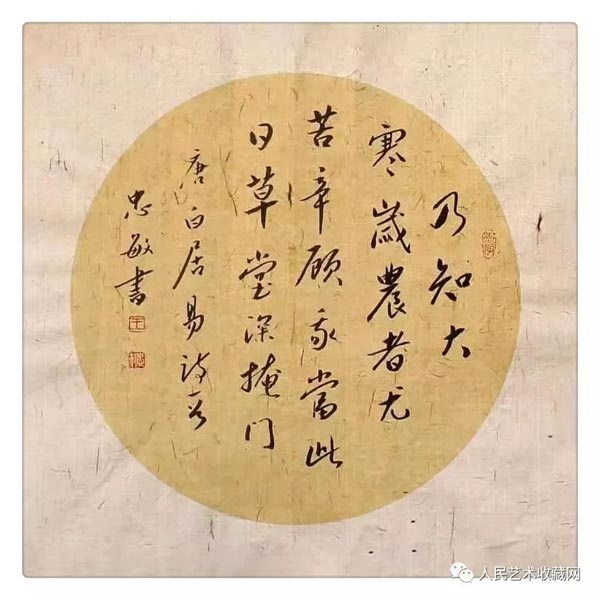 乃知大
寒歲農者尤
苦辛顧我當此
日草堂深掩門
唐白居易詩句
忠敏書
人民艺术收藏网